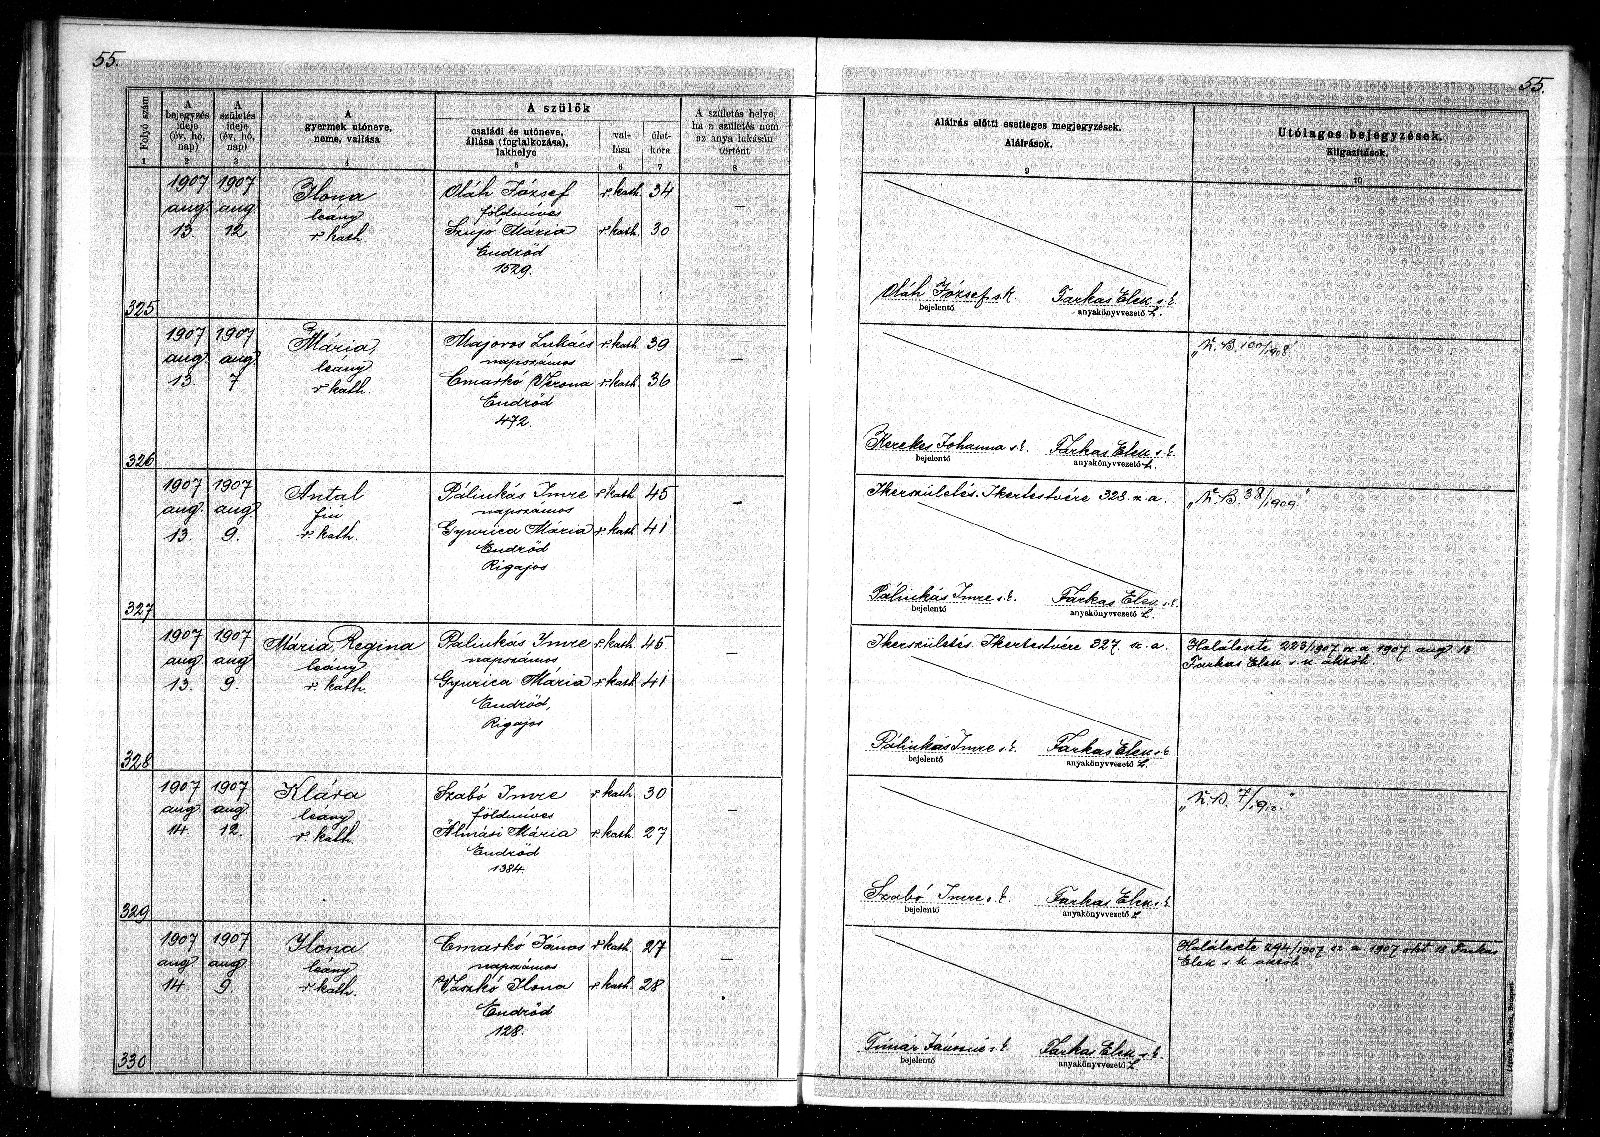 55.
55.
Folyó szám
A bejegyzés ideje (év, hó, nap)
A születés ideje (év, hó, nap)
A gyermek utóneve, neme, vallása
A szülők
családi és utóneve, állása (foglalkozása), lakhelye
val-lása
élet-kora
A születés helye, ha a születés nem az anya lakásán történt
Aláírás előtti esetleges megjegyzések.
Aláírások.
Utólagos bejegyzések.
Kiigazítások.
1 2 3 4 5 6 7 8 9 10
325
1907 1907 Ilona Oláh József r. kath. 34 —
aug. aug. leány földmíves
13. 12 r. kath. Szujó Mária r. kath. 30
Endrőd
1529.
Oláh József s. k. Farkas Elek s. k.
bejelentő anyakönyvvezető h.
326
1907 1907 Mária, Majoros Lukács r. kath. 39 —
aug. aug. leány napszámos
13. 7 r. kath. Csmarkó Verona r. kath. 36
Endrőd
472.
Kerekes Johanna s. k. Farkas Elek s. k.
bejelentő anyakönyvvezető h.
100/1908
327
1907 1907 Antal Pálinkás Imre r. kath. 45 —
aug. aug. fiú napszámos
13. 9. r. kath. Gyurica Mária r. kath. 41
Endrőd
Rigajos
Ikerszületés. Ikertestvére 328. sz. a.
Pálinkás Imre s. k. Farkas Elek s. k.
bejelentő anyakönyvvezető h.
38/1909.
328
1907 1907 Mária, Regina Pálinkás Imre r. kath. 45 —
aug. aug. leány napszámos
13. 9. r. kath. Gyurica Mária r. kath. 41
Endrőd,
Rigajos
Ikerszületés. Ikertestvére 327. sz. a.
Pálinkás Imre s. k. Farkas Elek s. k.
bejelentő anyakönyvvezető h.
Halálesete 223/1907 sz. a. 1907 aug
Farkas Elek s. k. akvh.
329
1907 1907 Klára Szabó Imre r. kath. 30 —
aug. aug. leány földmíves
14 12. r. kath. Álmási Mária r. kath. 27
Endrőd
1384.
Szabó Imre s. k. Farkas Elek s. k.
bejelentő anyakönyvvezető h.
330
1907 1907 Ilona Csmarkó János r. kath. 27 —
aug. aug. leány napszámos
14 9 r. kath. Vaszkó Ilona r. kath. 28
Endrőd
128.
Tímár Jánosné s. k. Farkas Elek s. k.
bejelentő anyakönyvvezető h.
Halálesete 294/1907 sz. a. 1907 okt. Farkas
Elek s. k. akvh.